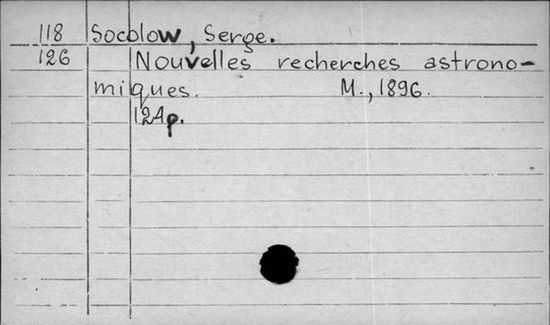 118 Socolow, Serge.
126 Nouvelles recherches astrono-
miques. M., 1896.
124p.